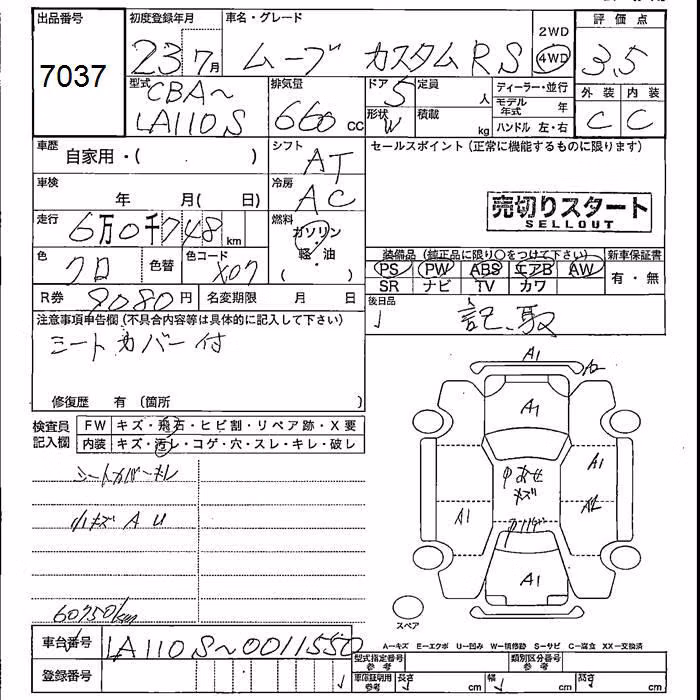 出品番号 初度登録年月 車名・グレード 評価点
7037 23年7月 ムーブ カスタム RS 2WD 4WD 3.5
型式 CBA~ LA110S 排気量 660 cc ドア 5 形状 W 定員 人 積載 kg
ディーラー・並行 モデル年式 年 ハンドル 左・右
外装 内装
C C
車歴 自家用・( ) シフト AT セールスポイント(正常に機能するものに限ります)
車検 年 月( 日) 冷房 AC
売切りスタート
SELLOUT
走行 6万0千748 km 燃料 ガソリン・軽・油 ( )
色 クロ 色替 色コード X07
装備品(純正品に限り○をつけて下さい) 新車保証書
PS PW ABS エアB AW 有・無
SR ナビ TV カワ
R券 8080円 名変期限 月 日 後日品
記、取
注意事項申告欄(不具合内容等は具体的に記入して下さい)
シートカバー付
修復歴 有(箇所 )
検査員記入欄 FW キズ・飛石・ヒビ割・リペア跡・X要
内装 キズ・汚レ・コゲ・穴・スレ・キレ・破レ
シートカバーキレ
小キズ A U
60750km
A1
A2
A1
A1
A1
A2
キズ
A1
スペア
車台番号 LA110S~0011550
登録番号
A…キズ E…エクボ U…凹み W…補修跡 S…サビ C…腐食 XX…交換済
型式指定番号 参考 類別区分番号 参考
車庫証明用 参考 長さ cm 幅 cm 高さ cm